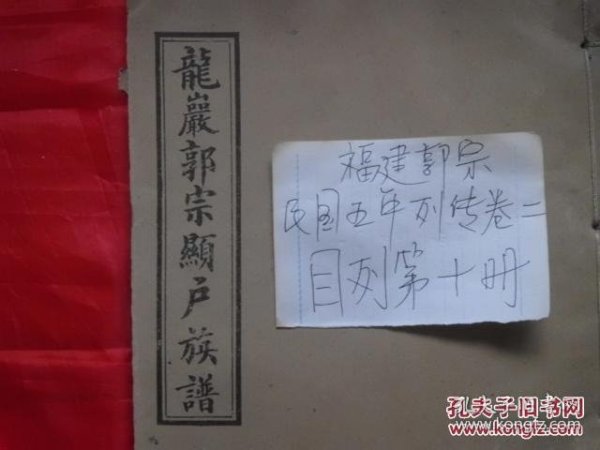 龍巖郭宗顯户族譜
福建郭宗
民国五年列传卷二
目列第十册
孔夫子旧书网
www.kongfz.com